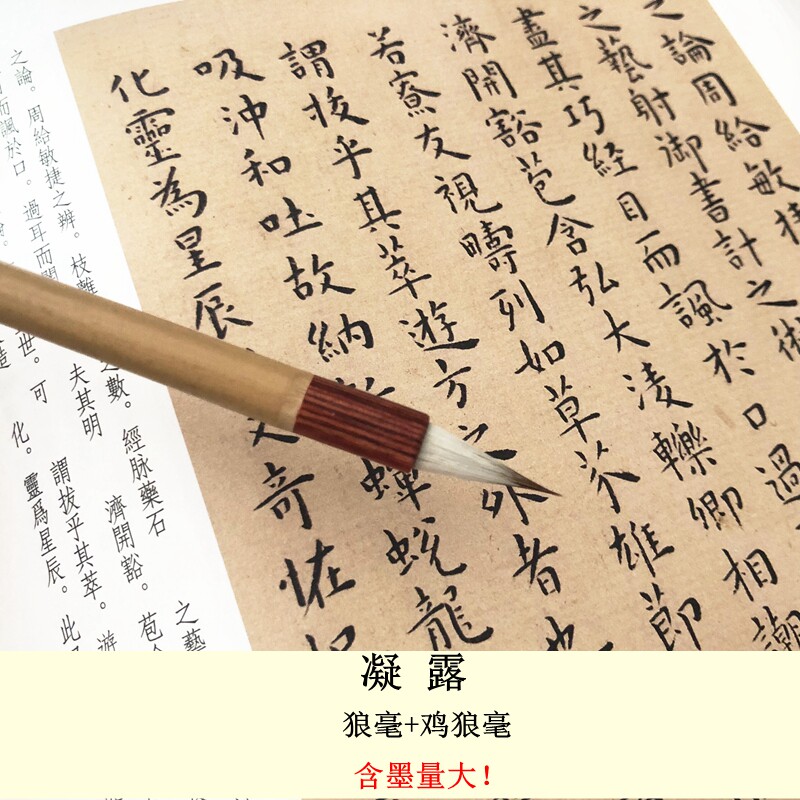 之論周給敏捷
之藝射御書計之術
盡其巧經目而諷於口過
濟開豁苞含弘大淩轢卿相謿
若寮友視疇列如草芥雄節
謂拔乎其萃遊方之外者也
吸沖和吐故納 蟬蛻龍
化靈為星辰 奇恠
之論。周給敏捷之辨。枝離 之數。經脉藥石 之藝
而諷於口。過耳而 夫其明 濟開豁。苞
世。可 謂拔乎其萃。遊
化。靈爲星辰。此
凝 露
狼毫+鸡狼毫
含墨量大！